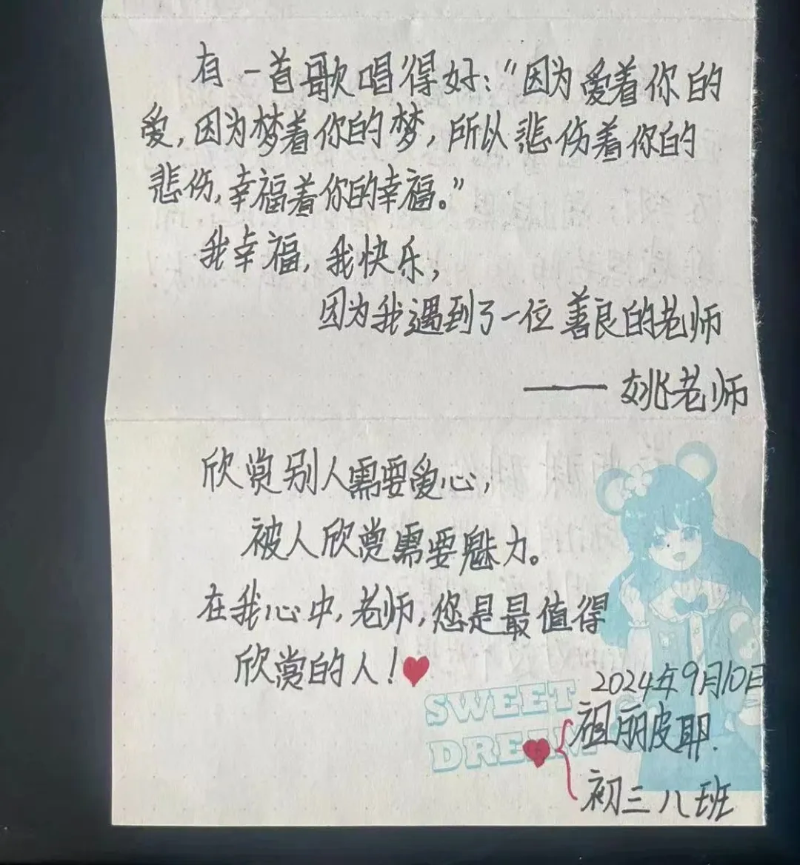 有一首歌唱得好:“因为爱着你的
爱,因为梦着你的梦,所以悲伤着你的
悲伤,幸福着你的幸福。”
我幸福,我快乐,
因为我遇到了一位善良的老师
——姚老师
欣赏别人需要爱心,
被人欣赏需要魅力。
在我心中,老师,您是最值得
欣赏的人!
2024年9月10日
SWEET
DREAM
祖丽皮耶.
初三八班